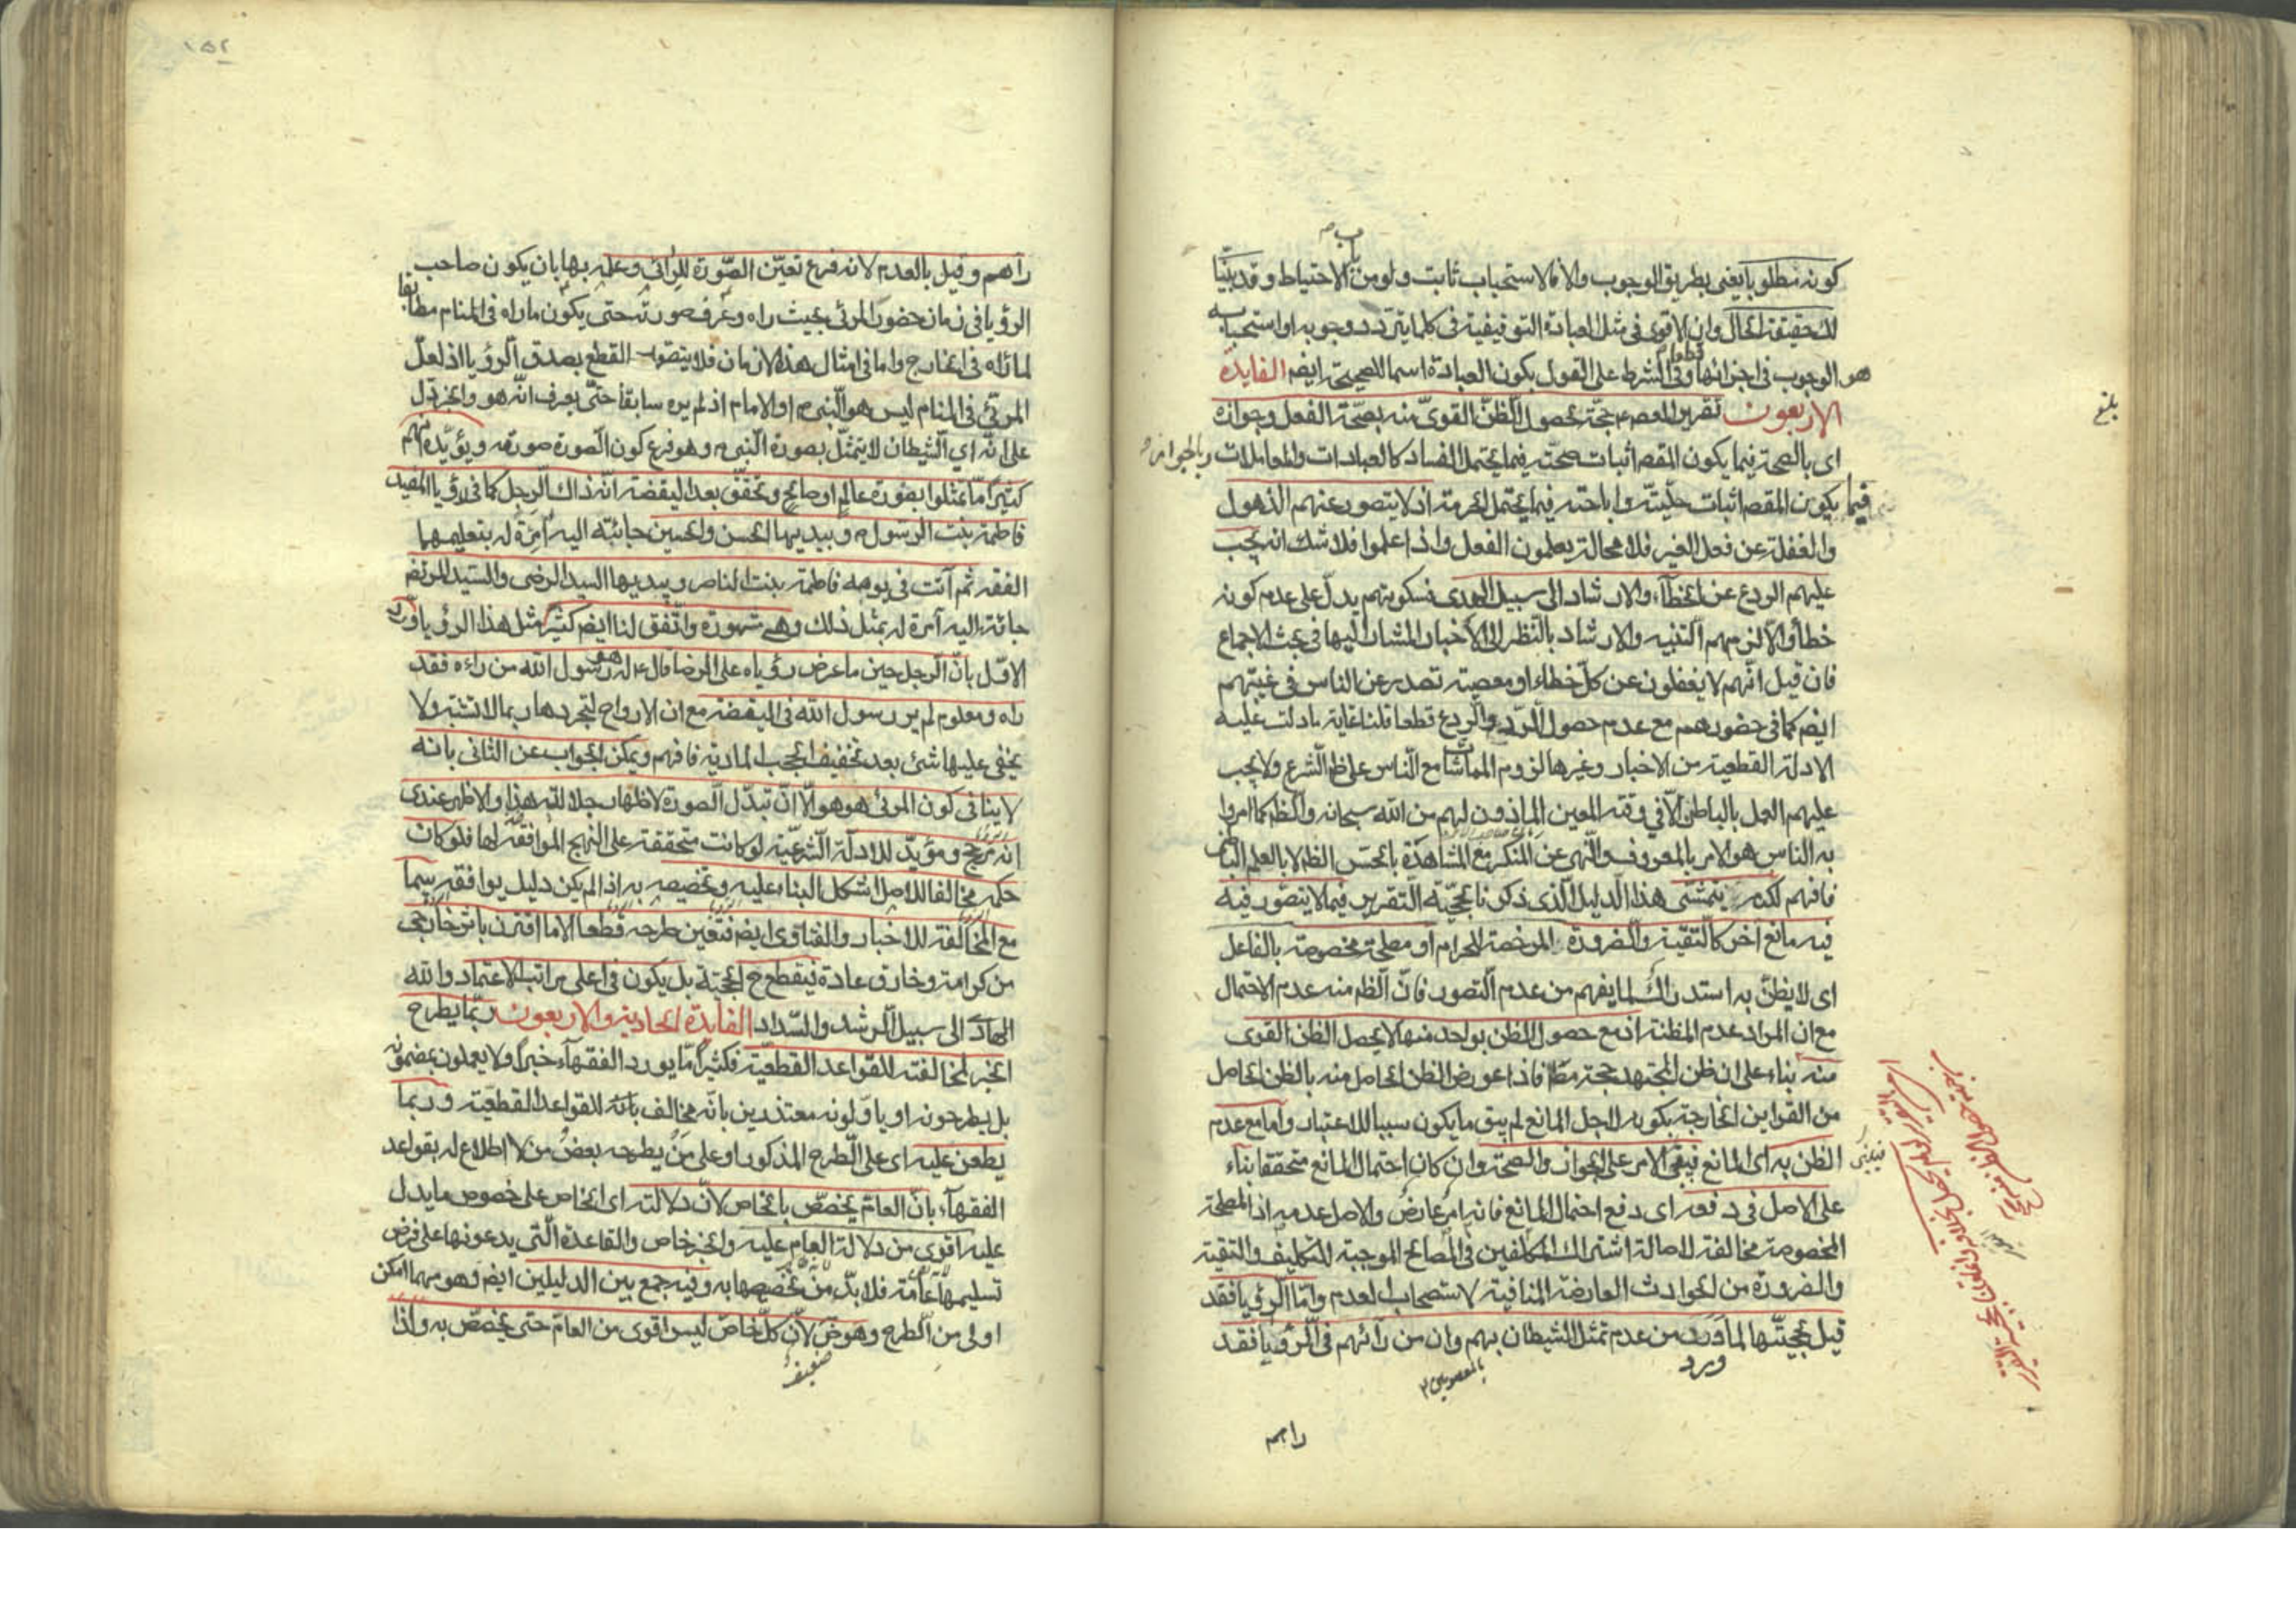 كونه مطلوبا يعنى بطريق الوجوب والا فالاستحباب ثابت ولو من باب الاحتياط وقد بيّنا
لك حقيقة الحال وان الاقوى فى مثل العبادة التوقيفية فى كلما يتردد وجوبه او استحبابه
هو الوجوب فى اجزائها وفى الشرط على القول بكون العبادة اسما للصحيحة ايضم الفايدة
الاربعون تقرير المعصوم حجّة بحصول الظنّ القوىّ منه بصحّة الفعل وجوازه
اى بالصحة فيما يكون المقصد اثبات صحته فيما يحتمل الفساد كالعبادات والمعاملات وبالجواز
فيما يكون المقصد اثبات حلّيته واباحته فيما يحتمل الحرمة اذ لا يتصور عنهم الذهول
والغفلة عن فعل الغير فلا محالة يعلمون الفعل واذا علموا فلا شك انه يجب
عليهم الردع عن الخطآء والارشاد الى سبيل الهدى فسكوتهم يدلّ على عدم كونه
خطأ والّا لزمهم التنبيه والارشاد بالنّظر الى الاخبار المشار اليها فى بحث الاجماع
فان قيل انّهم لا يغفلون عن كلّ خطاء او معصية تصدر عن الناس فى غيبتهم
ايضم كما فى حضورهم مع عدم حصول الرّد والرّدع قطعا قلنا غاية ما دلت عليه
الادلة القطعية من الاخبار وغيرها لزوم المماشات مع النّاس على ظم الشّرع ولا يجب
عليهم العمل بالباطن الّا فى وقته المعين الماذون لهم من الله سبحانه والظم كما امروا
به الناس هو الامر بالمعروف والنّهى عن المنكر مع المشاهدة بالحسّ الظم لا بالعلم الباطن
فافهم لكن يتمشّى هذا الدليل الّذى ذكرنا لحجّية التّقرير فيما لا يتصوّر فيه
فيه مانع اخر كالتّقية والضرورة المرخصة للحرام او مصلحة مخصوصة بالفاعل
اى لا يظنّ به استدراك لما يفهم من عدم التّصور فانّ الظم منه عدم الاحتمال
مع ان المراد عدم المظنة اذ مع حصول الظن بواحد منها لا يحصل الظن القوى
منه بناء على ان ظن المجتهد حجة مطم فاذا عورض الظن الحاصل منه بالظن الحاصل
من القراين الخارجة بكونه لاجل المانع لم يبق ما يكون سببا للاعتبار وامّا مع عدم
الظن به اى المانع فيبقى الامر على الجواز والصحة وان كان احتمال المانع متحققا بناء
على الاصل فى دفعه اى دفع احتمال المانع فانه امر عارض والاصل عدمه اذ المصلحة
المخصوصة مخالفة لاصالة اشتراك المكلّفين فى المصالح الموجبة للتكليف والتقية
والضرورة من الحوادث العارضة المنافية لاستصحاب العدم وامّا الرؤيا فقد
قيل بحجيّتها لما ورد من عدم تمثل الشيطان بهم وان من رائهم فى الرؤيا فقد
ورد
راهم
بلغ
١٥٢
رآهم وقيل بالعدم لانه فرع تعيّن الصّورة للرائى وعلمه بها بان يكون صاحب
الرؤيا فى زمان حضور المرئى بحيث راه وعرف صورته حتى يكون ما راه فى المنام مطابقا
لما راه فى الخارج واما فى امثال هذه الازمان فلا يتصور القطع بصدق الرؤيا اذ لعلّ
المرئى فى المنام ليس هو النّبى او الامام اذ لم يره سابقا حتّى يعرف انّه هو والخبر دل
على انّه اي الشيطان لا يتمثّل بصورة النّبى وهو فرع كون الصّورة صورته ويؤيّده انهم
كثيرا مّا تمثلوا بصورة عالم او صالح وتحقّق بعد اليقضة انّه ذاك الرّجل كما فى رؤيا المفيد
فاطمة بنت الرسول وبيديها الحسن والحسين جائته اليه آمرة له بتعليمهما
الفقه ثم آتت فى يومه فاطمة بنت الناصر وبيديها السيد الرضى والسيد المرتضى
جائة اليه آمرة له بمثل ذلك وهى مشهورة واتّفق لنا ايضم كثيرا مثل هذا الرؤيا وردّ
الاوّل بانّ الرجل حين ما عرض رؤياه على الرضا قال له هو رسول الله من راءه فقد
راه ومعلوم لم ير رسول الله فى اليقضة مع ان الارواح لتجردها ربما لا تشتبه ولا
يخفى عليها شئ بعد تخفيف الحجب المادية فافهم ويمكن الجواب عن الثانى بانه
لا ينافى كون المرئى هو هو الّا انّ تبدّل الصورة لاظهار جلالته هذا والاظهر عندى
انه مرجّح ومؤيّد للادلّة الشّرعيّة لو كانت متحققة على النهج الموافقة لها فلو كان
حكمه مخالفا للاصل اشكل البناء عليه وتخصيصه به اذا لم يكن دليل يوافقه سيما
مع المخالفة للاخبار والفتاوى ايضم فتعين طرحه قطعا الا ما اقترن باثر خارجى
من كرامة وخارق عادة فيقطع ح الحجية بل يكون فى اعلى مراتب الاعتماد والله
الهادى الى سبيل الرشد والسّداد الفايدة الحادية والاربعون ربّما يطرح
الخبر لمخالفته للقواعد القطعيّة فكثيرا مّا يورد الفقهآء خبرا ولا يعملون بمضمونه
بل يطرحونه او ياوّلونه معتذرين بانّه مخالف للقواعد القطعيّة وربما
يطعن عليه اى على الطّرح المذكور او على من يطرحه بعض من لا اطلاع له بقواعد
الفقهآء بانّ العامّ يخصّص بالخاص لانّ دلالته اى الخاص على خصوص ما يدل
عليه اقوى من دلالة العام عليه والخبر خاص والقاعدة الّتى يدعونها على فرض
تسليمها عامّة فلا بدّ من تخصيصها به وفيه جمع بين الدليلين ايضم وهو مهما امكن
اولى من الطرح وهو ض لانّ كلّ خاصّ ليس اقوى من العامّ حتى يخصّص به واذا
ضعيف